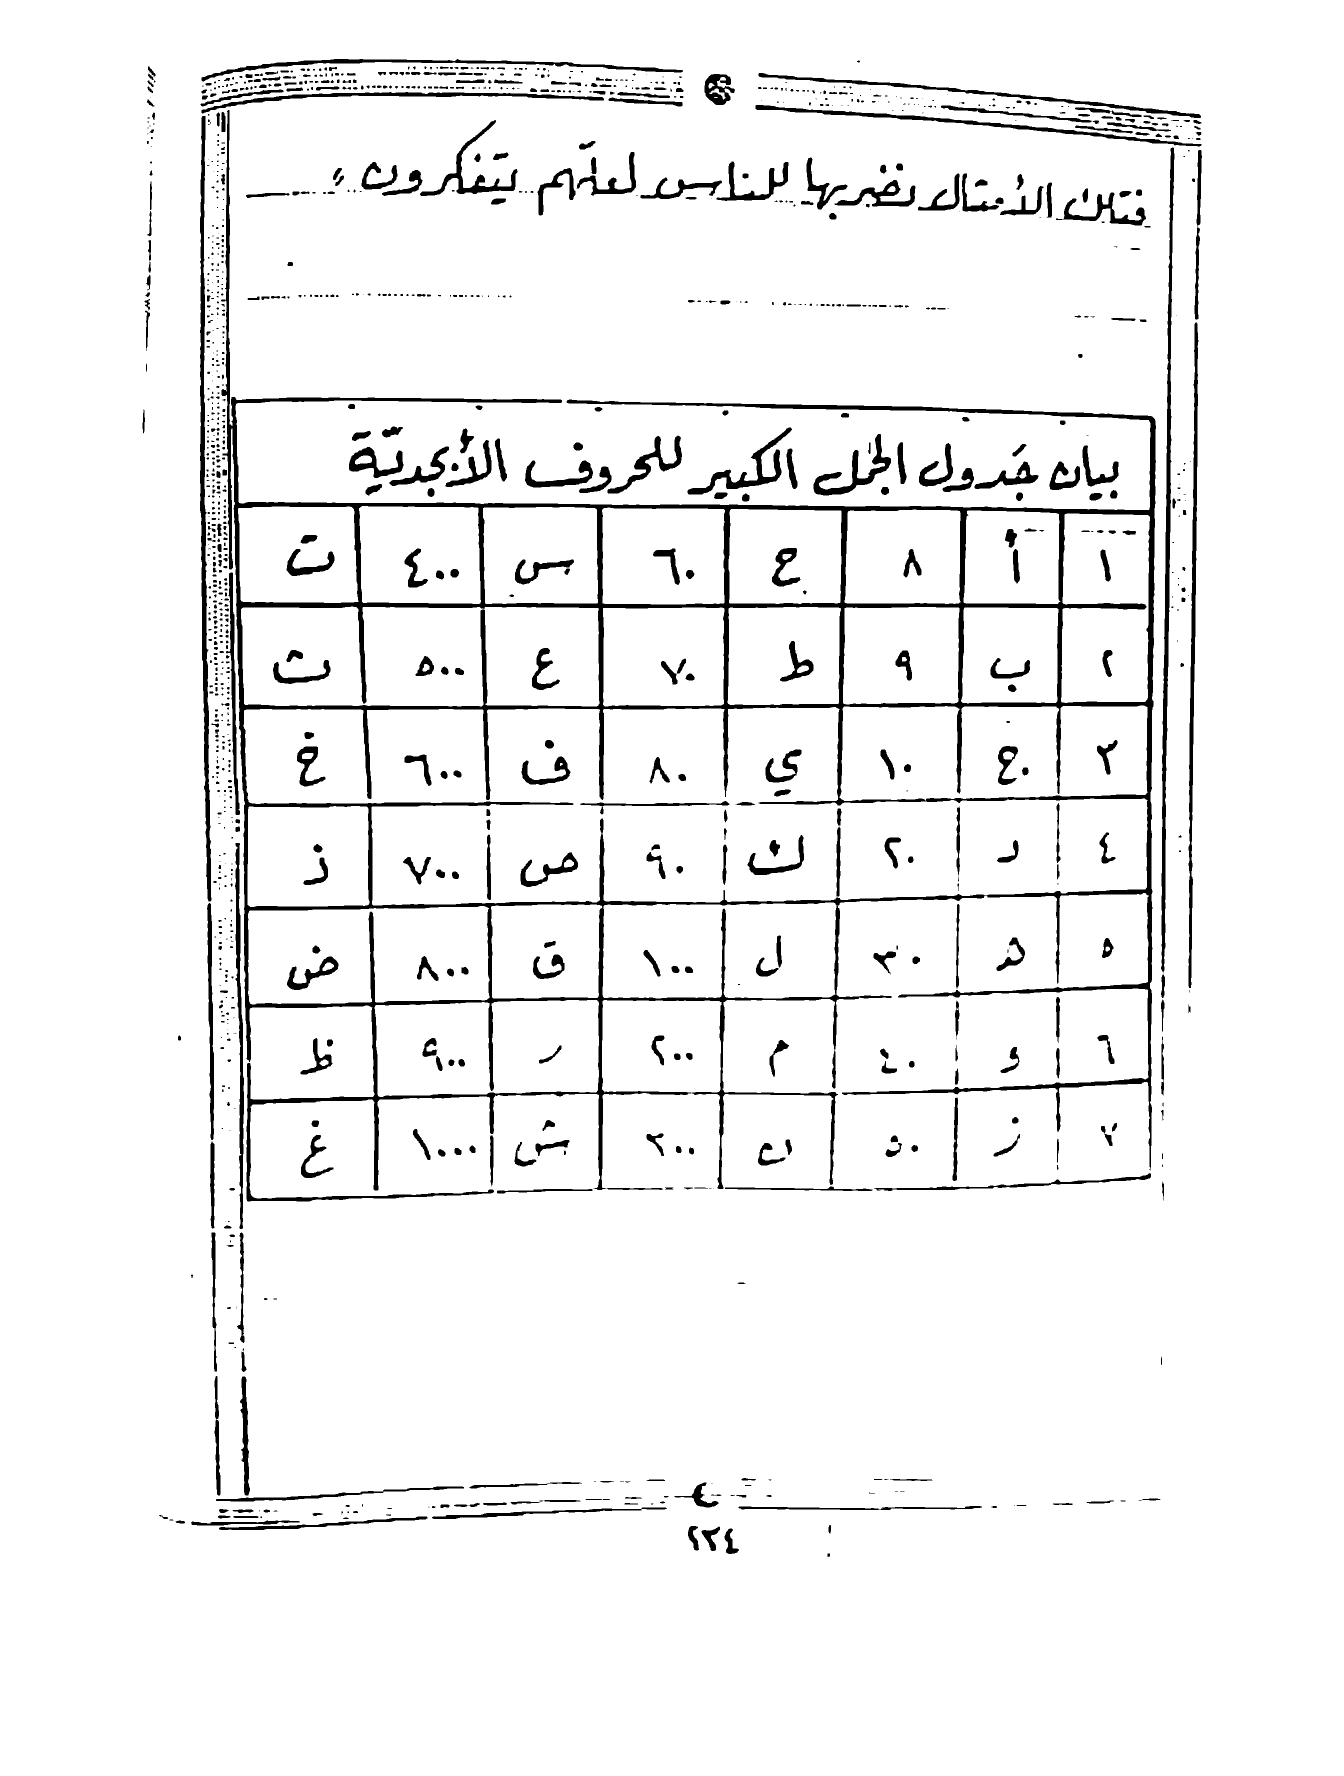 فتلك الأمثال نضربها للناس لعلّهم يتفكرون"
بيان جَدول الجُمل الكبير للحروف الأبجديّة
١ أ ٨ ح ٦٠ س ٤٠٠ ت
٢ ب ٩ ط ٧٠ ع ٥٠٠ ث
٣ ج ١٠ ي ٨٠ ف ٦٠٠ خ
٤ د ٢٠ ك ٩٠ ص ٧٠٠ ذ
٥ هـ ٣٠ ل ١٠٠ ق ٨٠٠ ض
٦ و ٤٠ م ٢٠٠ ر ٩٠٠ ظ
٧ ز ٥٠ ن ٣٠٠ ش ١٠٠٠ غ
٢٣٤